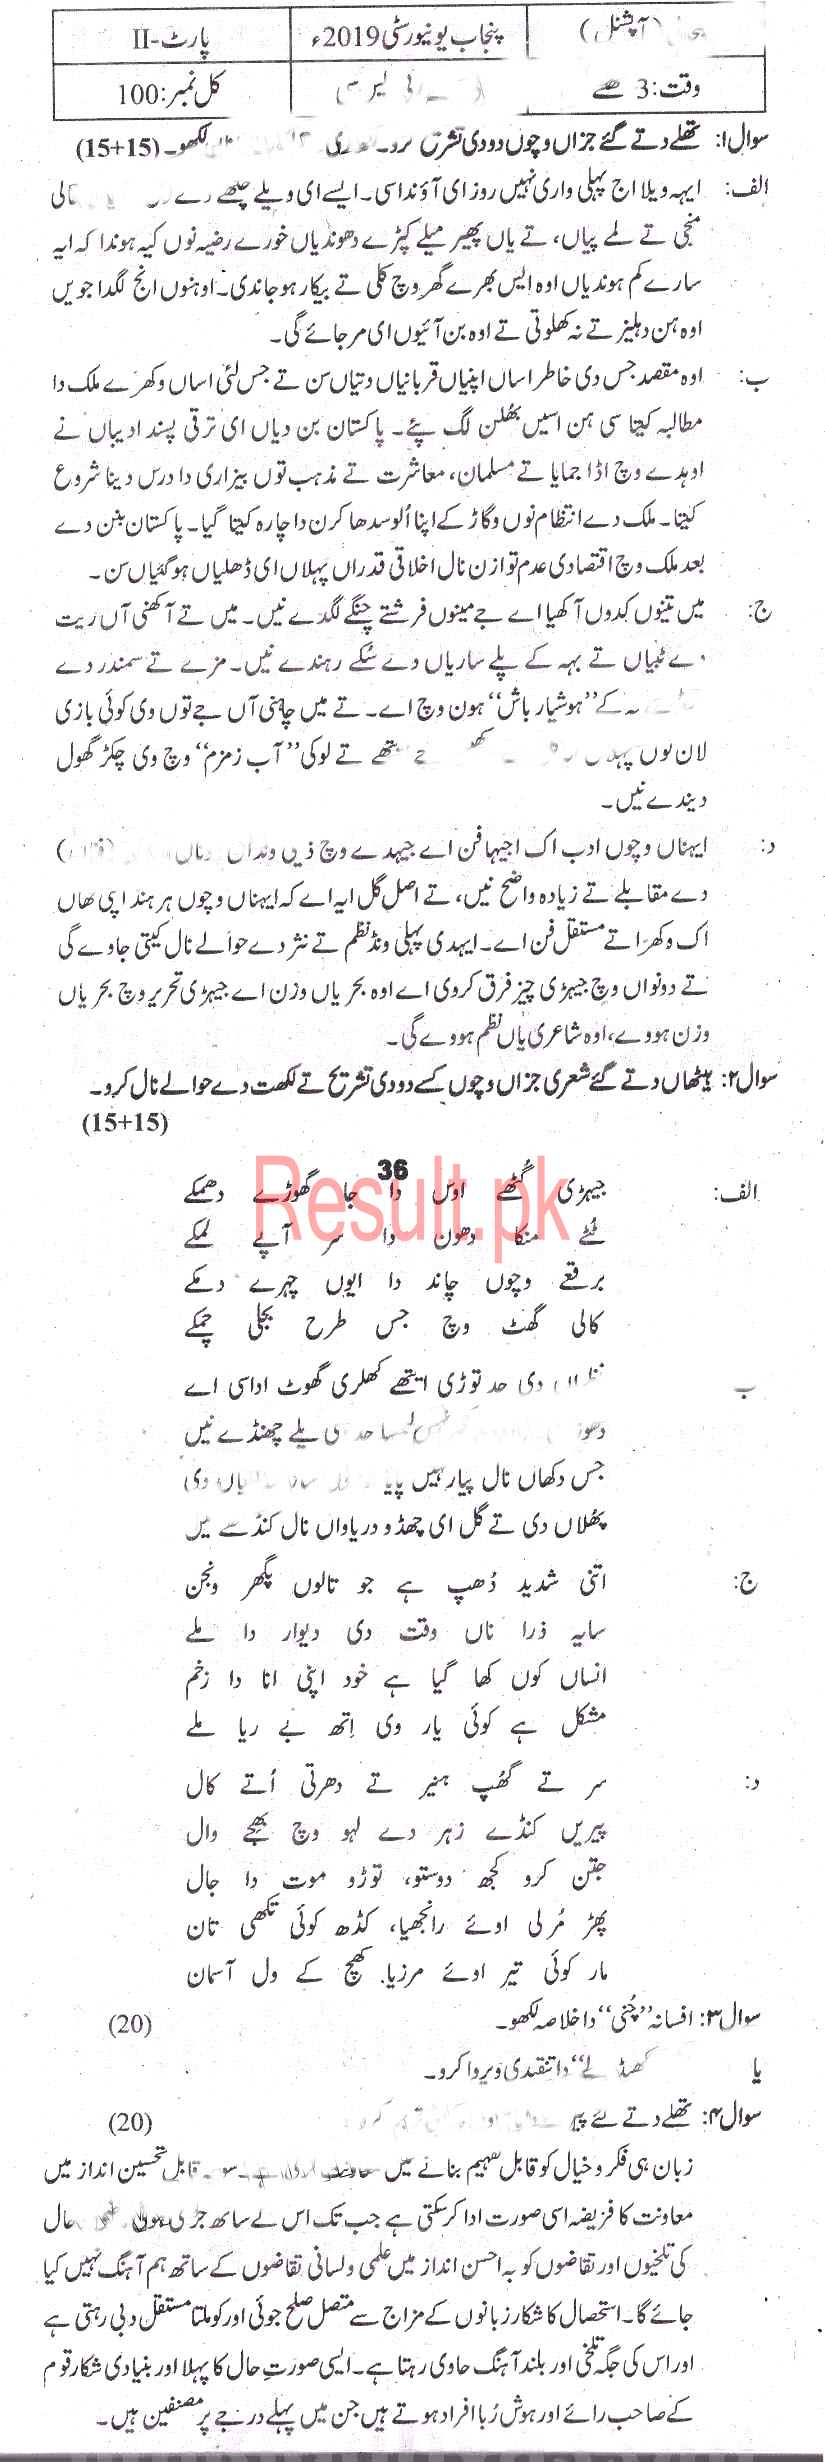 (آپشنل) پنجاب یونیورسٹی 2019ء پارٹ-II
وقت: 3 گھنٹے کل نمبر: 100
سوال ۱: تھلے دتے گئے جزاں وچوں دو دی تشریح کرو۔ لکھو۔ (15+15)
الف: ایہہ ویلا اج پہلی واری نہیں روز ای آؤنداسی۔ ایسے ای ویلے چلھے دے
منجی تے لمے پیاں، تے یاں پھیر میلے کپڑے دھوندیاں خورے رضیہ نوں کیہ ہوندا کہ ایہ
سارے کم ہوندیاں اوہ ایس بھرے گھر وچ کلی تے بیکار ہو جاندی۔ اوہنوں انج لگدا جویں
اوہ ہن دہلیز تے نہ کھلوتی تے اوہ بن آئیوں ای مر جائے گی۔
ب: اوہ مقصد جس دی خاطر اساں اپنیاں قربانیاں دتیاں سن تے جس لئی اساں وکھرے ملک دا
مطالبہ کیتا سی ہن اسیں بھلن لگ پئے۔ پاکستان بن دیاں ای ترقی پسند ادیباں نے
اوہدے وچ اڈا جمایا تے مسلمان، معاشرت تے مذہب توں بیزاری دا درس دینا شروع
کیتا۔ ملک دے انتظام نوں وگاڑ کے اپنا اُلو سدھا کرن دا چارہ کیتا گیا۔ پاکستان بنن دے
بعد ملک وچ اقتصادی عدم توازن نال اخلاقی قدراں پہلاں ای ڈھلیاں ہو گئیاں سن۔
ج: میں تینوں کدوں آکھیا اے جے مینوں فرشتے چنگے لگدے نیں۔ میں تے آکھنی آں ریت
دے ٹبیاں تے بہہ کے پلے ساریاں دے سُکے رہندے نیں۔ مزے تے سمندر دے
کے "ہوشیار باش" ہون وچ اے۔ تے میں چاہنی آں جے توں وی کوئی بازی
لان توں پہلاں تے لوکی "آب زمزم" وچ وی چکڑ گھول
دیندے نیں۔
د: ایہناں وچوں ادب اک اجیہا فن اے جیہدے وچ
دے مقابلے تے زیادہ واضح نیں، تے اصل گل ایہ اے کہ ایہناں وچوں ہر ہند اپنی تھاں
اک وکھرا تے مستقل فن اے۔ ایہدی پہلی ونڈ نظم تے نثر دے حوالے نال کیتی جاوے گی
تے دوناں وچ جیہڑی چیز فرق کردی اے اوہ بحر یاں وزن اے جیہڑی تحریر وچ بحر یاں
وزن ہووے، اوہ شاعری یاں نظم ہووے گی۔
سوال ۲: ہیٹھاں دتے گئے شعری جزاں وچوں کسے دو دی تشریح تے لکھت دے حوالے نال کرو۔
(15+15)
36
Result.pk
الف: جیہڑی گُٹھے اوس دا جا گھوڑے دھمکے
ٹُٹے منکا دھون دا سر آپے لمکے
برقعے وچوں چاند دا ایوں چہرے دمکے
کالی گھٹ وچ جس طرح بجلی چمکے
ب دی حد توڑی ایتھے کھلری گھوٹ اداسی اے
پلے چھنڈے نیں
جس دکھاں نال پیار نہیں پایا وی
پھُلاں دی تے گل ای چھڈو دریاواں نال کنڈے نیں
ج: اتنی شدید دُھپ ہے جو تالوں پگھر ونجن
سایہ ذرا ناں وقت دی دیوار دا ملے
انساں کوں کھا گیا ہے خود اپنی انا دا زخم
مشکل ہے کوئی یار وی اِتھ بے ریا ملے
د: سر تے گھُپ ہنیر تے دھرتی اُتے کال
پیریں کنڈے زہر دے لہو وچ بھجے وال
جتن کرو کجھ دوستو، توڑو موت دا جال
پھڑ مُرلی اوئے رانجھیا، کڈھ کوئی تکھی تان
مار کوئی تیر اوئے مرزیا۔ کھچ کے ول آسمان
سوال ۳: افسانہ "چُنی" دا خلاصہ لکھو۔ (20)
یا " دا تنقیدی ویروا کرو۔
سوال ۴: تھلے دتے گئے (20)
زبان ہی فکر و خیال کو قابل تفہیم بنانے میں قابل تحسین انداز میں
معاونت کا فریضہ اسی صورت ادا کر سکتی ہے جب تک اس کے ساتھ جڑی ہوئی حال
کی تلخیوں اور تقاضوں کو بہ احسن انداز میں علمی و لسانی تقاضوں کے ساتھ ہم آہنگ نہیں کیا
جائے گا۔ استحصال کا شکار زبانوں کے مزاج سے متصل صلح جوئی اور کوملتا مستقل دبی رہتی ہے
اور اس کی جگہ تلخی اور بلند آہنگ حاوی رہتا ہے۔ ایسی صورتِ حال کا پہلا اور بنیادی شکار قوم
کے صاحب رائے اور ہوش رُبا افراد ہوتے ہیں جن میں پہلے درجے پر مصنفین ہیں۔